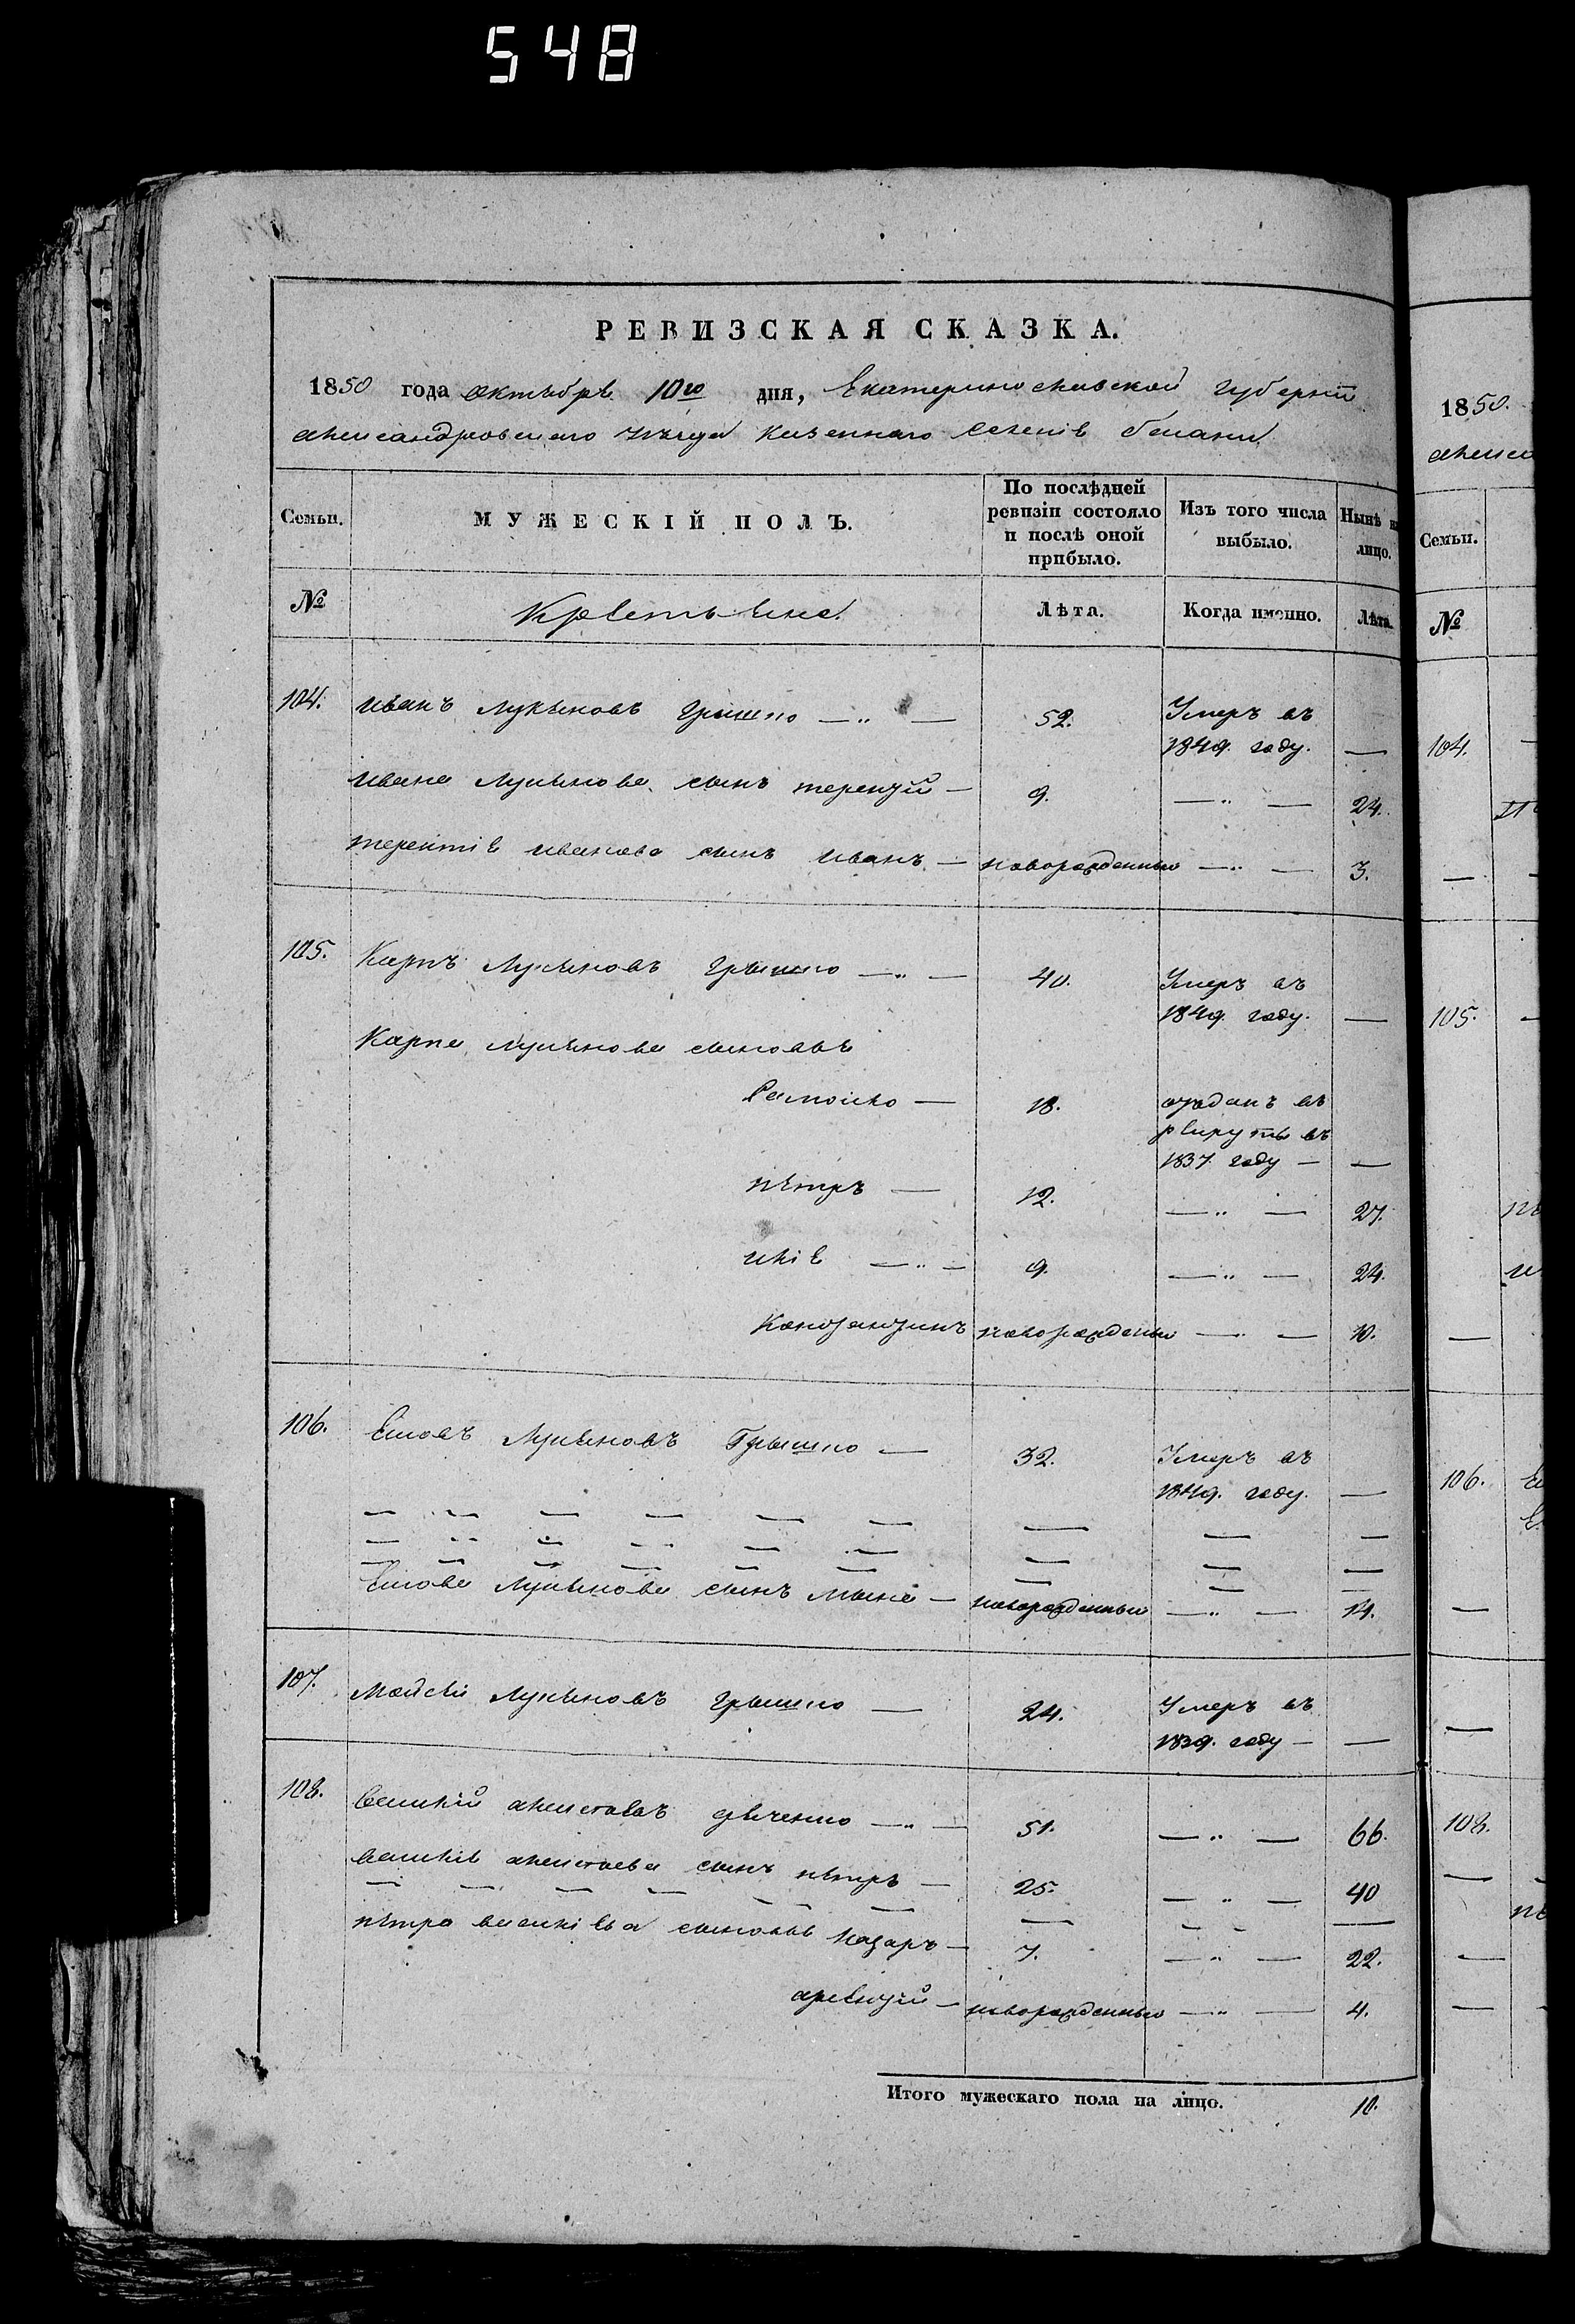 548
РЕВИЗСКАЯ СКАЗКА.
1850 года октября 10го дня, Екатеринославской губерніи
александровскаго уѣзда казеннаго селенія
Семьи.
МУЖЕСКІЙ ПОЛЪ.
По послѣдней ревизіи состояло и послѣ оной прибыло.
Изъ того числа выбыло.
Нынѣ на лицо.
№
Крестьяне
Лѣта.
Когда именно.
Лѣта.
104. иванъ лукьяновъ Гришко — „ — 52. Умеръ въ
1849. году. —
ивана лукьянова сынъ терентій — 9. — „ — 24.
терентія иванова сынъ иванъ — новорожденный — „ — 3.
105. Карпъ лукьяновъ Гришко — „ — 40. Умеръ въ
1849. году. —
Карпа лукьянова сыновья
Самойло — 18. отданъ въ
рекруты въ
1837. году — —
пётръ — 12. — „ — 27.
илія — „ — 9. — „ — 24.
Константинъ новорожденный — „ — 10.
106. Лукьяновъ Гришко — 32. Умеръ въ
1849. году. —
лукьянова сынъ — новорожденный — „ — 14.
107. Мойсей лукьяновъ Гришко — 24. Умеръ въ
1839. году — —
108. Василій алексѣевъ — „ — 51. — „ — 66.
василія алексѣева сынъ пётръ — 25. — „ — 40
пётра васильева сыновья Назаръ — 7. — „ — 22.
новорожденный — „ — 4.
Итого мужескаго пола на лицо. 10.
1850.
Семьи.
№
104.
105.
106.
108.